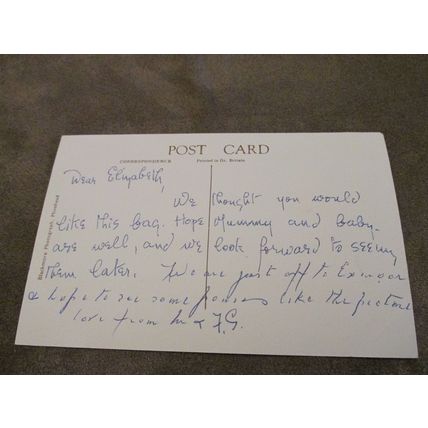 POST CARD
CORRESPONDENCE Printed in Gt. Britain
Dear Elizabeth,
We thought you would
like this bag. Hope Mummy and baby.
are well, and we look forward to seeing
them later. We are just off to Exmoor
& hope to see some ponies like the picture
love from M & F.G.
Photograph,